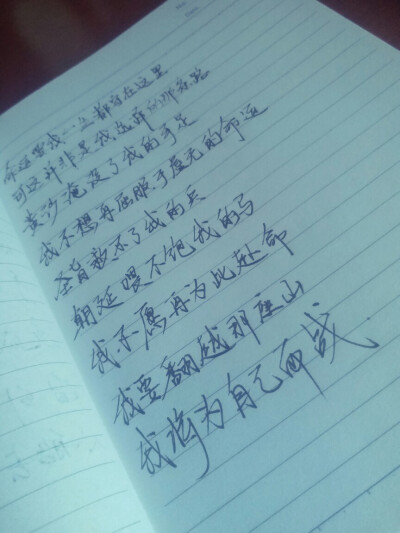 命运要我一生都守在这里
可这并非是我选择的那条路
黄沙淹没了我的手足
我不想再屈服于虚无的命运
圣旨救不了我的兵
朝廷喂不饱我的马
我不愿再为此赴命
我要翻越那座山
我将为自己而战